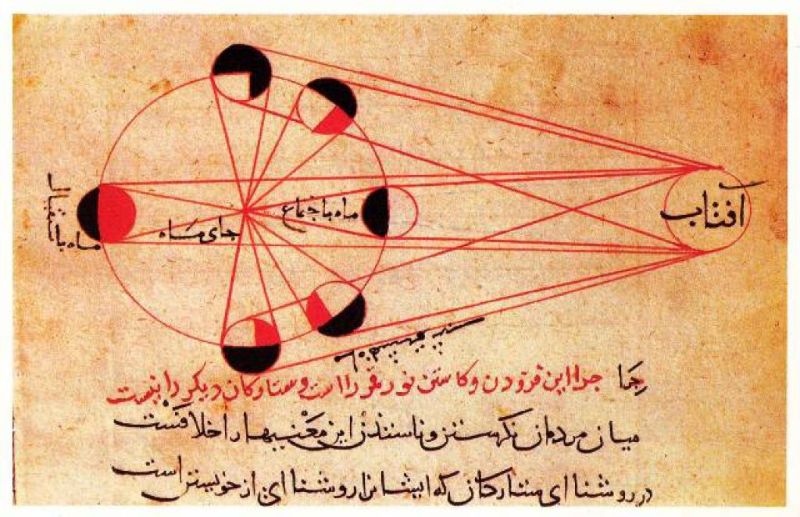 آفتاب
ماه باجتماع
جای ماه
ماه باستقبال
جرا این فزودن و کاستن نور قمر را است و ستارکان دیکر را نیست
میان مردمان نکرستن این معنیها را خلافست
در روشنا ای ستارکان که ایشانرا روشنا ای از خویشتن است